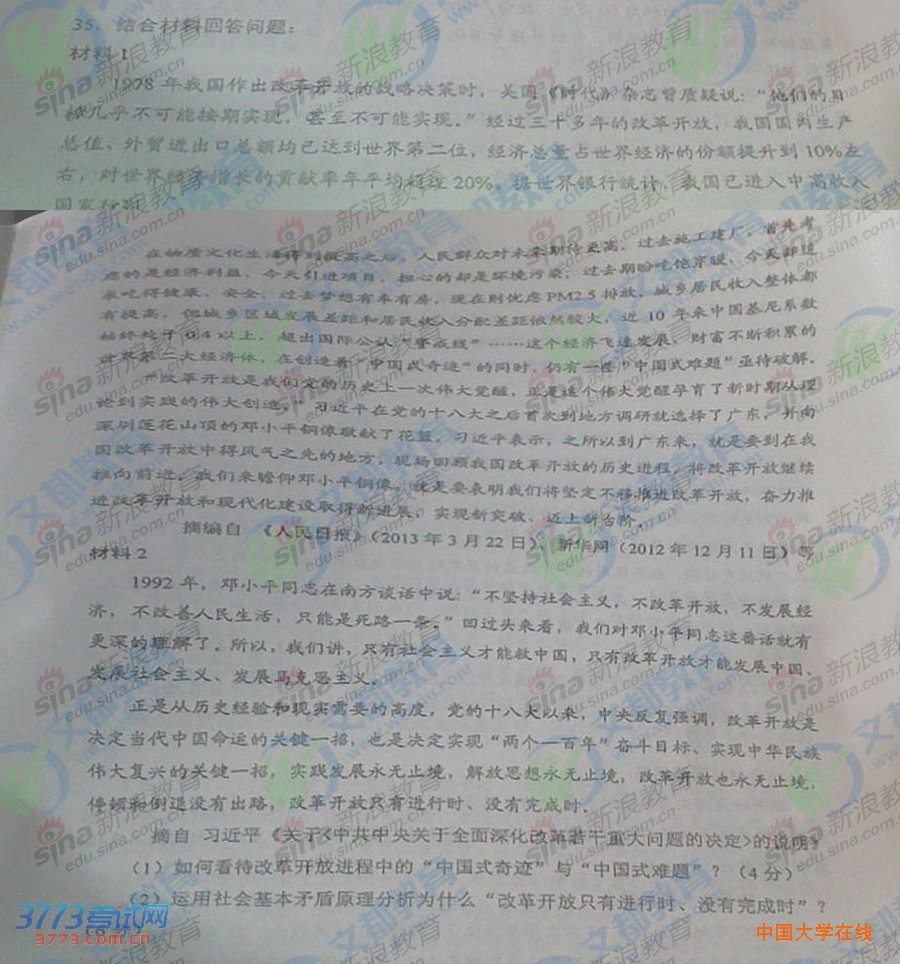 35. 结合材料回答问题：
材料 1
1978 年我国作出改革开放的战略决策时，美国《时代》杂志曾质疑说：“他们的目
标几乎不可能按期实现，甚至不可能实现。”经过三十多年的改革开放，我国国内生产
总值、外贸进出口总额均已达到世界第二位，经济总量占世界经济的份额提升到 10%左
右，对世界经济增长的贡献率年平均超过 20%。据世界银行统计，我国已进入中高收入
国家行列。
在物质文化生活得到提高之后，人民群众对未来期待更高，过去施工建厂，首先考
虑的是经济利益，今天引进项目，担心的却是环境污染；过去期盼吃饱穿暖，今天却追
求吃得健康、安全；过去梦想有车有房，现在则忧虑 PM2.5 排放。城乡居民收入整体都
有提高，但城乡区域发展差距和居民收入分配差距依然较大，近 10 年来中国基尼系数
始终处于 0.4 以上，超出国际公认“警戒线”……这个经济飞速发展、财富不断积累的
世界第二大经济体，在创造着“中国式奇迹”的同时，仍有一些“中国式难题”亟待破解。
“改革开放是我们党的历史上一次伟大觉醒，正是这个伟大觉醒孕育了新时期从理
论到实践的伟大创造。”习近平在党的十八大之后首次到地方调研就选择了广东，并向
深圳莲花山顶的邓小平铜像敬献了花篮。习近平表示，之所以到广东来，就是要到在我
国改革开放中得风气之先的地方，现场回顾我国改革开放的历史进程，将改革开放继续
推向前进。我们来瞻仰邓小平铜像，就是要表明我们将坚定不移推进改革开放，奋力推
进改革开放和现代化建设取得新进展、实现新突破、迈上新台阶。
摘编自 《人民日报》（2013 年 3 月 22 日）、新华网（2012 年 12 月 11 日）等
材料 2
1992 年，邓小平同志在南方谈话中说：“不坚持社会主义，不改革开放，不发展经
济，不改善人民生活，只能是死路一条。”回过头来看，我们对邓小平同志这番话就有
更深的理解了。所以，我们讲，只有社会主义才能救中国，只有改革开放才能发展中国、
发展社会主义、发展马克思主义。
正是从历史经验和现实需要的高度，党的十八大以来，中央反复强调，改革开放是
决定当代中国命运的关键一招，也是决定实现“两个一百年”奋斗目标、实现中华民族
伟大复兴的关键一招，实践发展永无止境，解放思想永无止境，改革开放也永无止境，
停顿和倒退没有出路，改革开放只有进行时、没有完成时。
摘自 习近平《关于<中共中央关于全面深化改革若干重大问题的决定>的说明》
（1）如何看待改革开放进程中的“中国式奇迹”与“中国式难题”？（4 分）
（2）运用社会基本矛盾原理分析为什么“改革开放只有进行时、没有完成时”？
3773考试网
3773.com.cn
中国大学在线
sina新浪教育
edu.sina.com.cn
文都教育